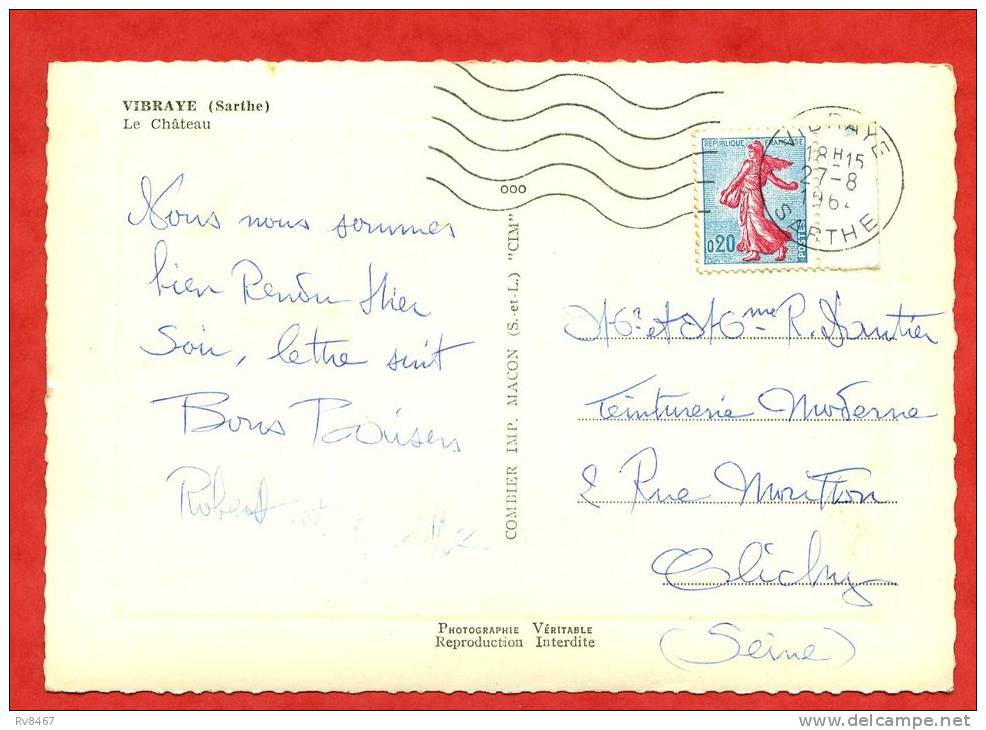 VIBRAYE (Sarthe)
Le Château
Nous nous sommes
bien Rendu Hier
Soir, lettre suit
Bons Baisers
Robert et
ooo
COMBIER IMP. MACON (S.-et-L.) "CIM"
REPUBLIQUE FRANÇAISE
0,20
POSTES
VIBRAYE
18H15
27-8
196
SARTHE
Mr et Mme R.
Teinturerie Moderne
2 Rue
Clichy
(Seine)
PHOTOGRAPHIE VÉRITABLE
Reproduction Interdite
Rv8467
delcampe.net